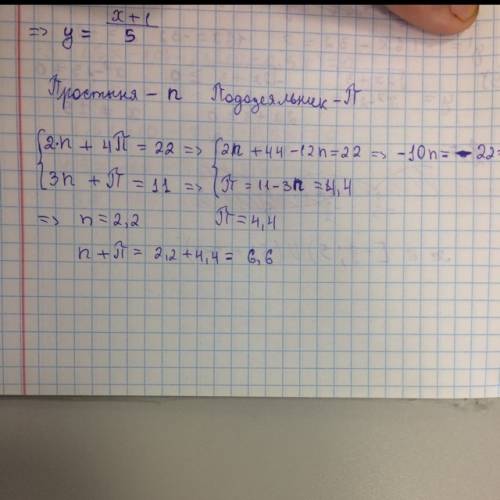 => y = (x+1)/5
Простыня - п Пододеяльник - П
{2·п + 4П = 22 => {2п + 44 - 12п = 22 => -10п = -22 =
{3п + П = 11 => {П = 11 - 3п = 4,4
=> п = 2,2 П = 4,4
п + П = 2,2 + 4,4 = 6,6